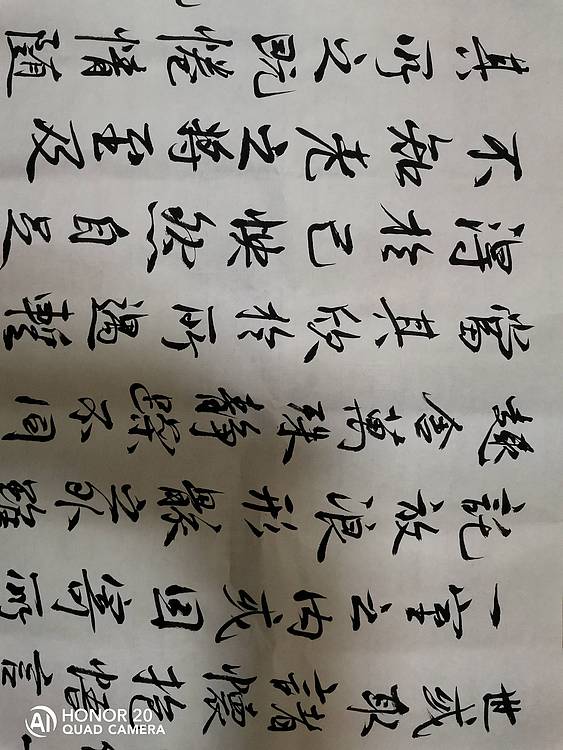 世或取諸懷抱悟言
一室之内或因寄所
託放浪形骸之外雖
趣舍萬殊静躁不同
當其欣於所遇輙
得於己快然自足
不知老之將至及
其所之既惓情隨
HONOR 20
QUAD CAMERA